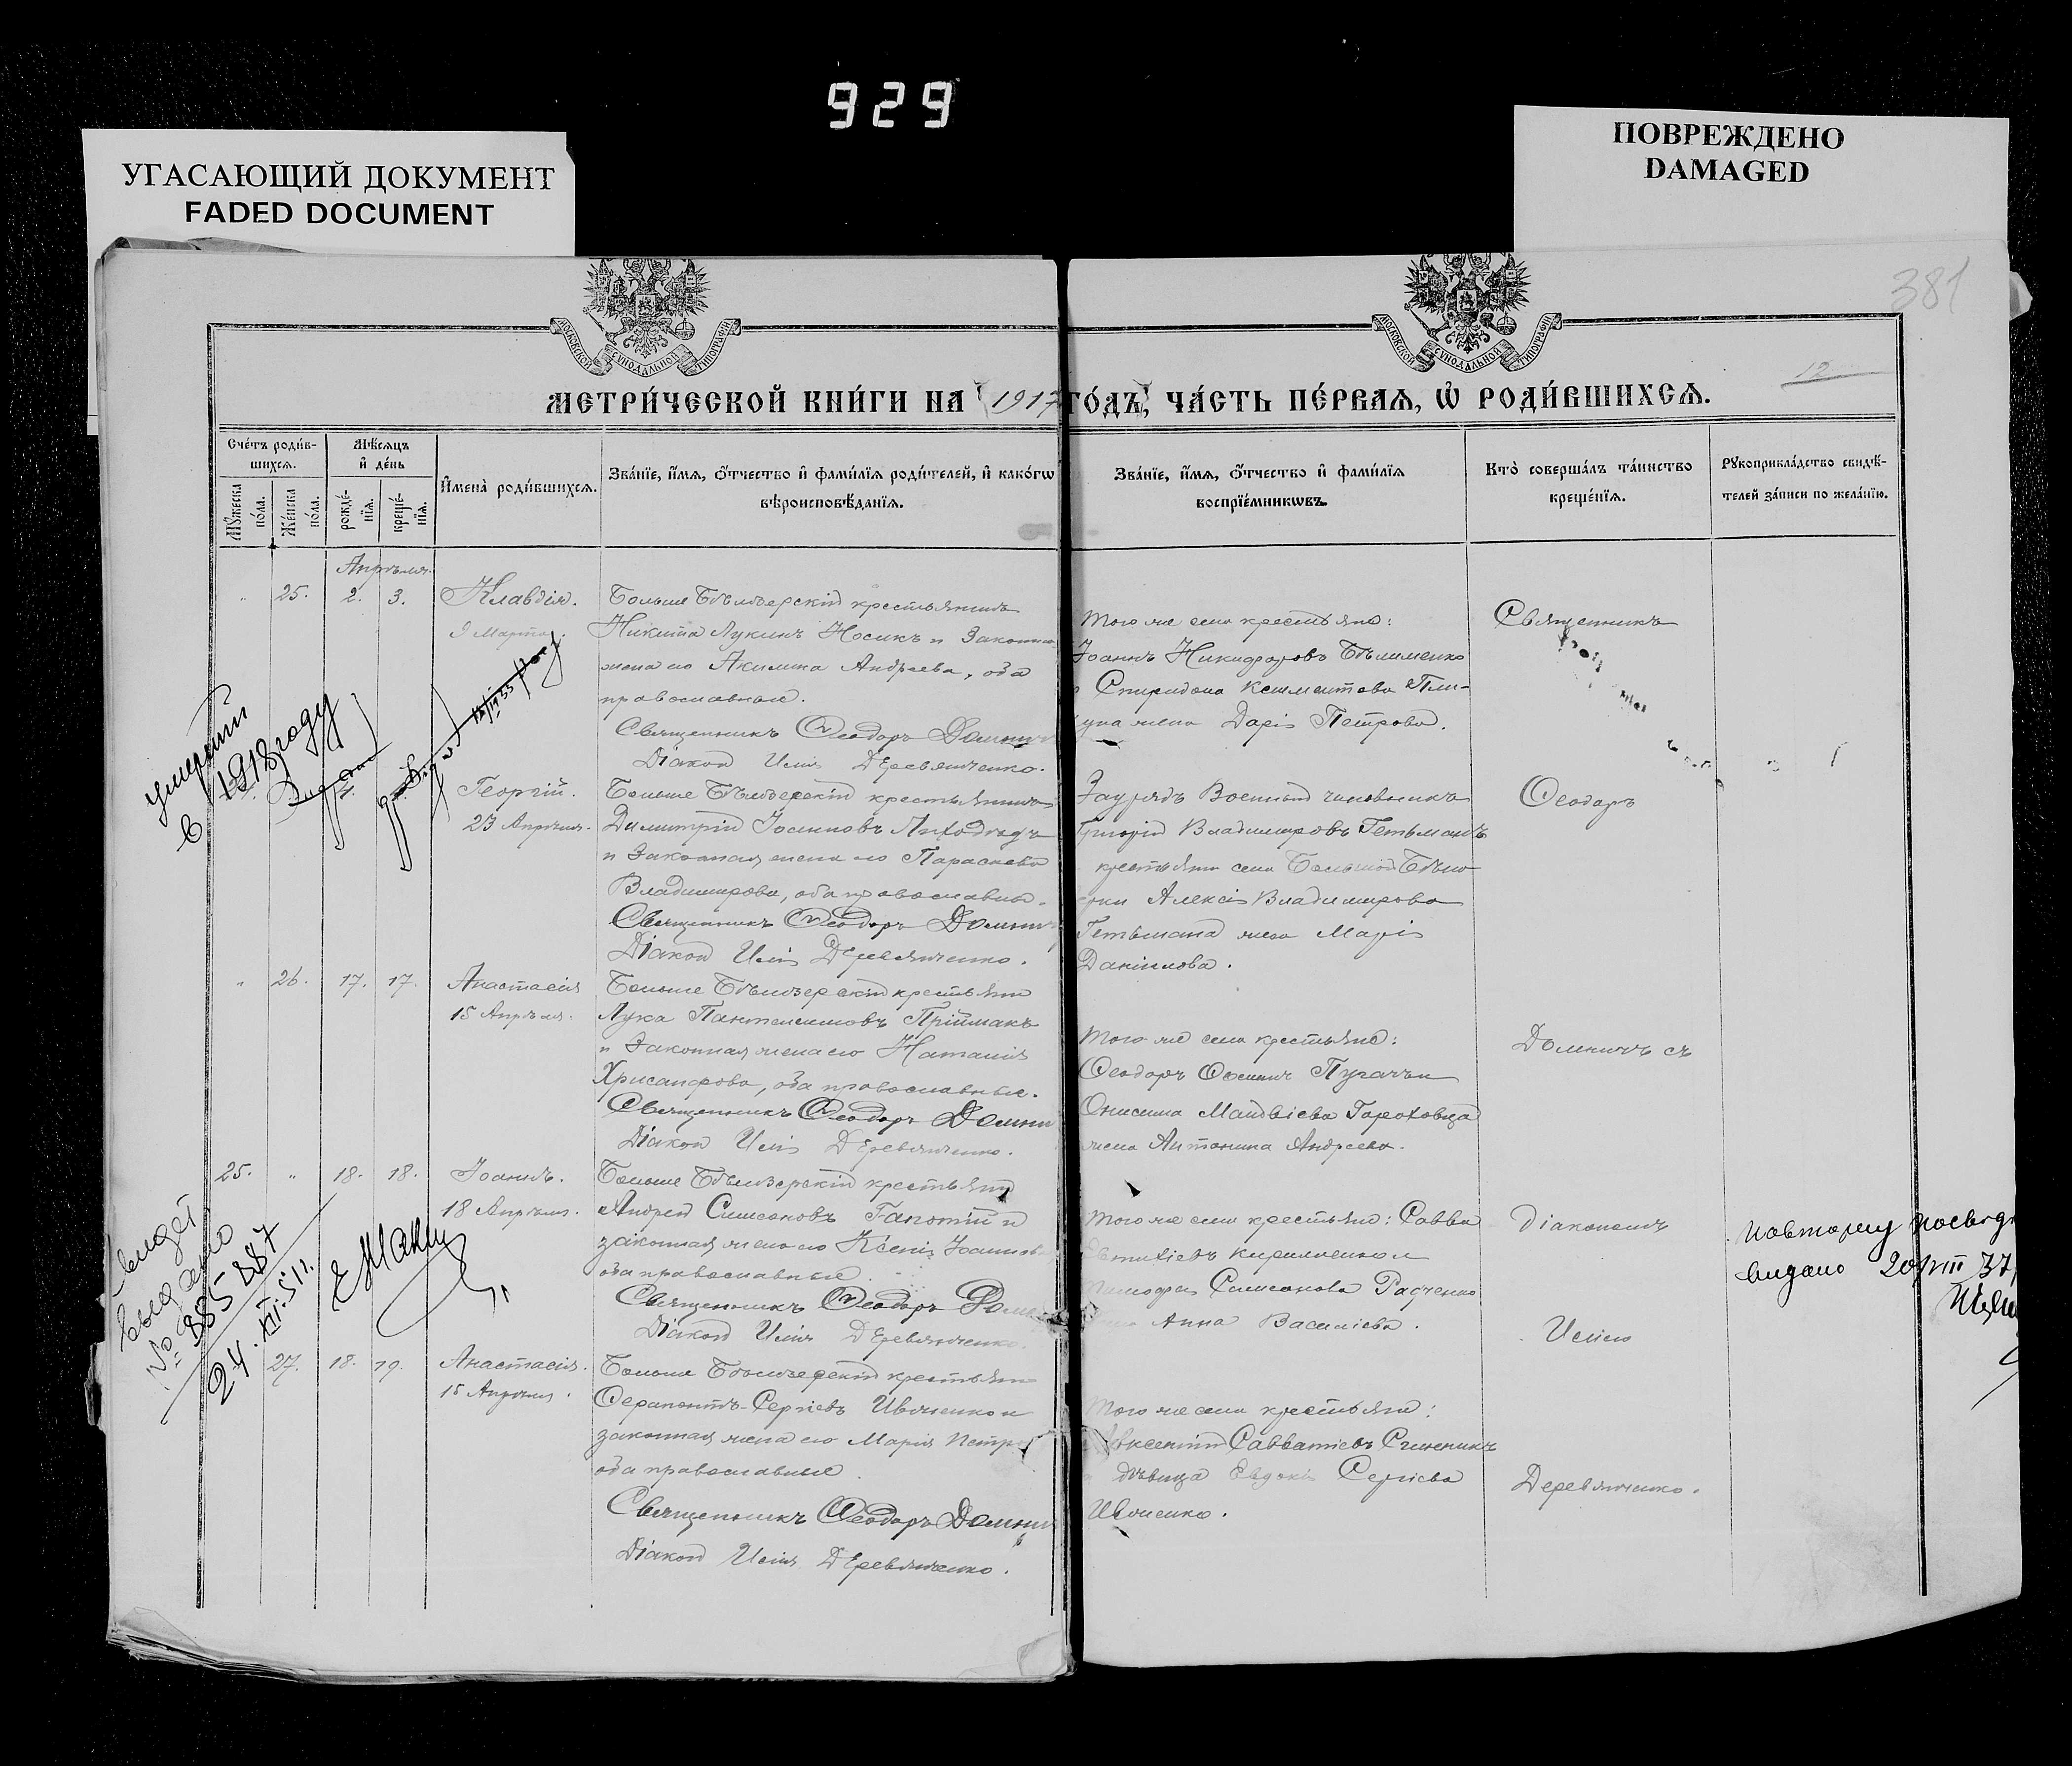 929
УГАСАЮЩИЙ ДОКУМЕНТ
FADED DOCUMENT
ПОВРЕЖДЕНО
DAMAGED
381
МОСКОВСКОЙ СУНОДАЛЬНОЙ ТИПОГРАФІИ
МОСКОВСКОЙ СУНОДАЛЬНОЙ ТИПОГРАФІИ
12
МЕТРИ́ЧЕСКОЙ КНИ́ГИ НА 1917 ГО́ДЪ, ЧА́СТЬ ПЕ́РВАЯ, Ѡ РОДИ́ВШИХСЯ.
Сче́тъ роди́в-
шихся.
Мѣ́сяцъ
и де́нь
Му́жеска по́ла.
Же́нска по́ла.
рожде́-
нїя.
креще́-
нїя.
И҆мена̀ роди́вшихся.
Зва́нїе, и҆́мя, ѻ҆́тчество и҆ фами́лїя роди́телей, и҆ како́гѡ
вѣроисповѣ́данїя.
Зва́нїе, и҆́мя, ѻ҆́тчество и҆ фами́лїя
воспрїе́мникѡвъ.
Кто̀ соверша́лъ та́инство
креще́нїя.
Рукоприкла́дство свидѣ́-
телей за́писи по жела́нїю.
Апрѣля.
" 25. 2. 3. Клавдія.
9 Марта.
Больше Бѣлозерскій крестьянинъ
Никита Лукинъ Носикъ и законная
жена его Акилина Андреева, оба
православные.
Священникъ Ѳеодоръ Домнич
Діаконъ Илія Деревянченко.
Того же села крестьяне:
Іоаннъ Никифоровъ Бѣлименко
Спиридона Климентова Пли-
жена Дарія Петрова.
Священникъ
умерший
в 1918 году
Георгій.
23 Апрѣля.
Больше Бѣлозерскій крестьянинъ
Димитрій Іоанновъ Лиходѣдъ
и законная жена его Параскева
Владимирова, оба православные.
Священникъ Ѳеодоръ Домнич
Діаконъ Илія Деревянченко.
Заурядъ Военный чиновникъ
Григорій Владимировъ Гетьманъ
крестьянина села Большой Бѣло-
зерки Алексія Владимирова
Гетьмана жена Марія
Даніилова.
Ѳеодоръ
" 26. 17. 17. Анастасія
15 Апрѣля.
Больше Бѣлозерскій крестьянинъ
Лука Пантелеимовъ Пріймакъ
и законная жена его Наталія
Хрисанфова, оба православные.
Священникъ Ѳеодоръ Домнич
Діаконъ Илія Деревянченко.
Того же села крестьяне:
Ѳеодоръ Пугачъ и
Онисима Матвіева Гороховца
жена Антонина Андреева.
Домничъ съ
25. " 18. 18. Іоаннъ.
18 Апрѣля.
Больше Бѣлозерскій крестьянинъ
Андрей Симеоновъ Гапотій и
законная жена его Ксенія Іоаннова
оба православные.
Священникъ Ѳеодоръ Домнич
Діаконъ Илія Деревянченко.
Того же села крестьяне: Савва
Евтихіевъ Кириленко и
Тимофея Симеонова Радченко
Анна Василіева.
Діакономъ
Иліею
повторну посвід
видано 20/VIII 37
выдано
№ 885887
24.XII.51 г.
27. 18. 19. Анастасія.
15 Апрѣля.
Больше Бѣлозерскій крестьянинъ
Ѳерапонтъ Сергіевъ Ивоненко и
законная жена его Марія Петрова
оба православные.
Священникъ Ѳеодоръ Домнич
Діаконъ Илія Деревянченко.
Того же села крестьяне:
Авксентій Савватіевъ
дѣвица Евдокія Сергіева
Ивоненко.
Деревянченко.